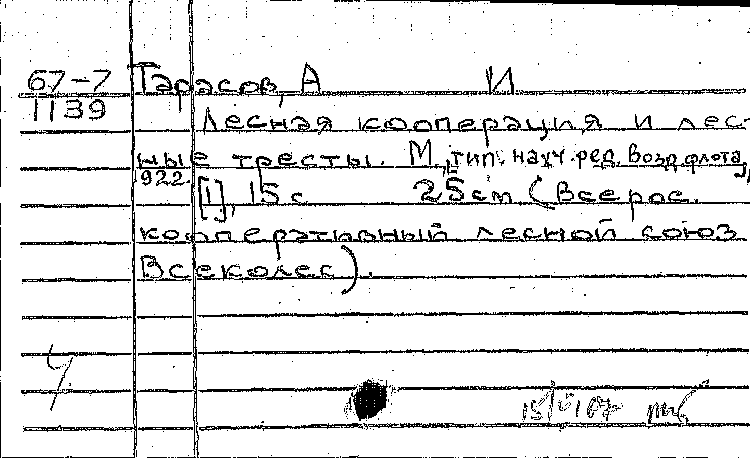 67-7 Тарасов, А И
1139
Лесная кооперация и лес-
ные тресты. М., тип. науч. ред. возд. флота,
922. [1], 15 с 25 см (Всерос.
кооперативный лесной союз
Всеколес).
4